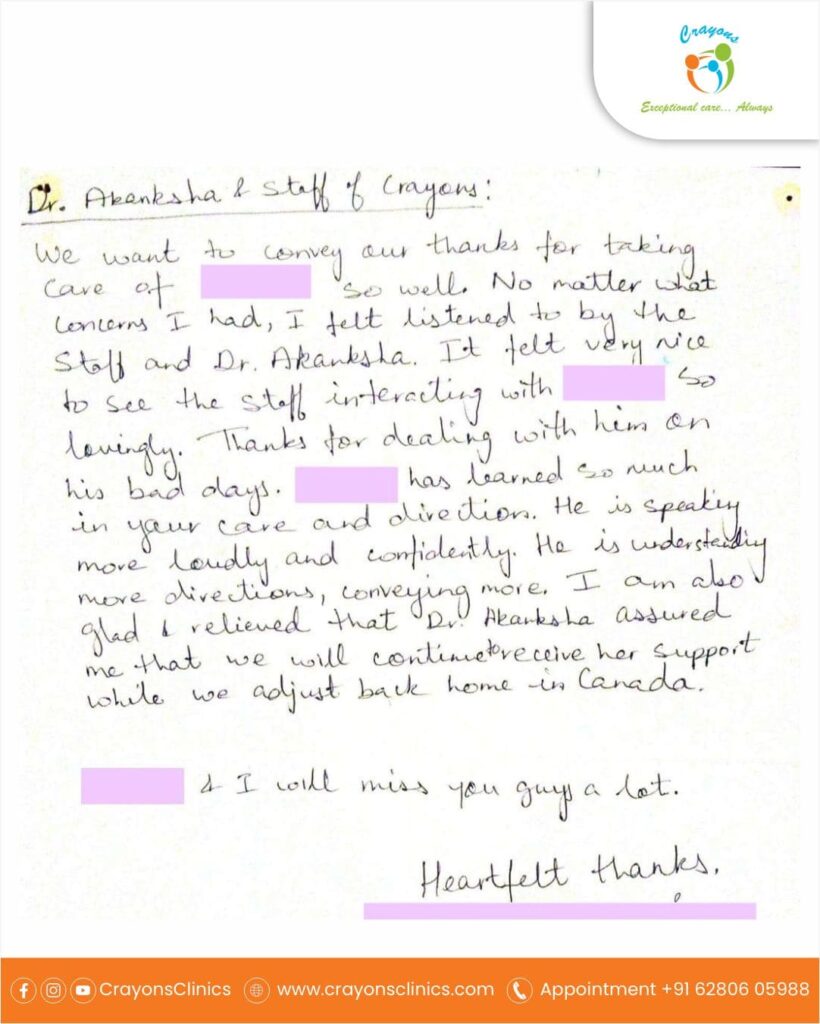 Crayons
Exceptional care... Always
Dr. Akanksha & Staff of Crayons:
We want to convey our thanks for taking
care of so well. No matter what
concerns I had, I felt listened to by the
Staff and Dr. Akanksha. It felt very nice
to see the staff interacting with so
lovingly. Thanks for dealing with him on
his bad days. has learned so much
in your care and direction. He is speaking
more loudly and confidently. He is understanding
more directions, conveying more. I am also
glad & relieved that Dr. Akanksha assured
me that we will continue to receive her support
while we adjust back home in Canada.
& I will miss you guys a lot.
Heartfelt thanks.
CrayonsClinics www.crayonsclinics.com Appointment +91 62806 05988